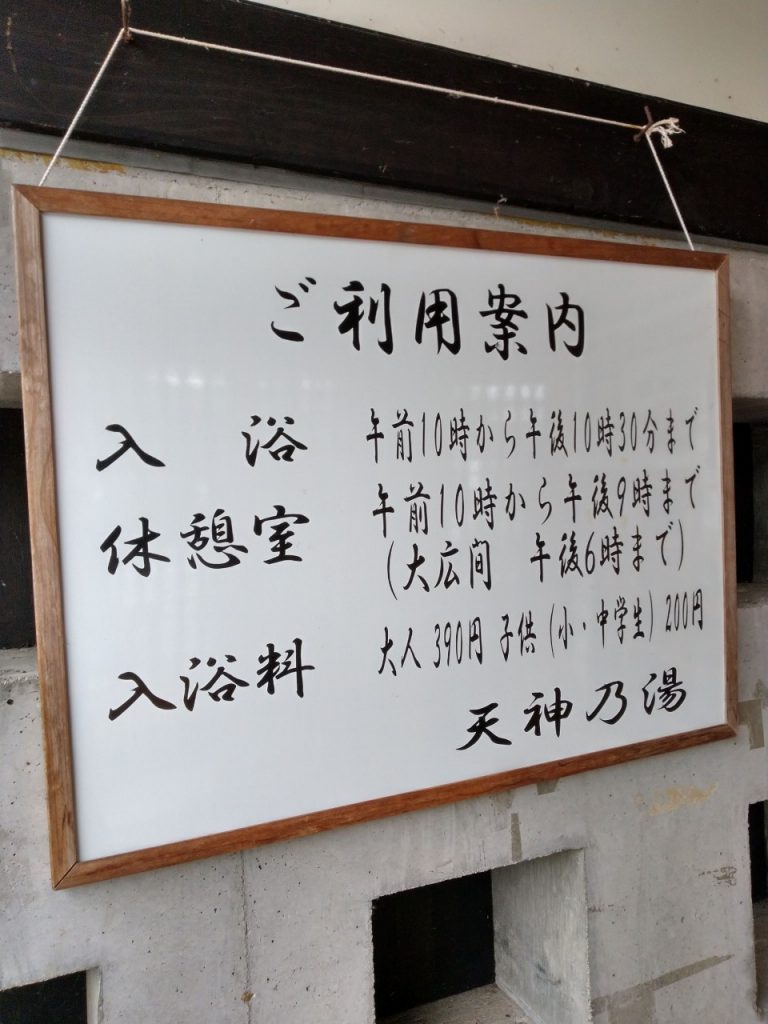 ご利用案内
入　浴　午前10時から午後10時30分まで
休憩室　午前10時から午後9時まで
(大広間　午後6時まで)
入浴料　大人 390円 子供 (小・中学生) 200円
天神乃湯